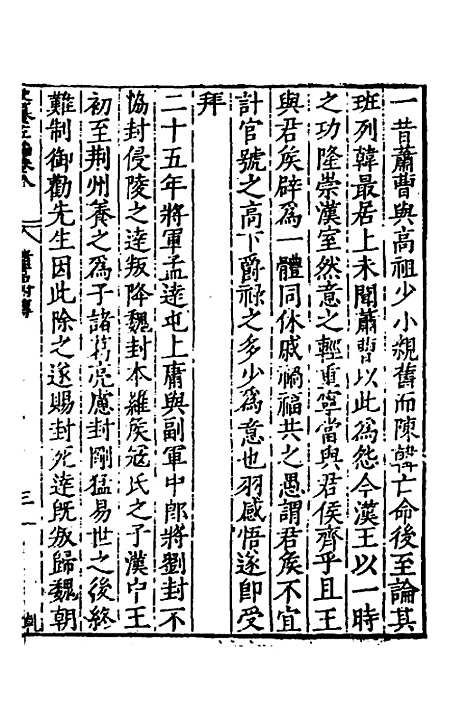 一昔蕭曹與高祖少小親舊而陳韓亡命後至論其
班列韓最居上未聞蕭曹以此爲怨今漢王以一時
之功隆崇漢室然意之輕重寧當與君侯齊乎且王
與君矦辟爲一體同休戚禍福共之愚謂君矦不宜
計官號之高下爵禄之多少爲意也羽感悟遂即受
拜
二十五年將軍孟達屯上庸與副軍中郎將劉封不
協封侵陵之達叛降魏封本羅矦冦氏之子漢中王
初至荆州養之爲子諸葛亮慮封剛猛易世之後終
難制御勸先生因此除之遂賜封死達旣叛歸魏朝
三